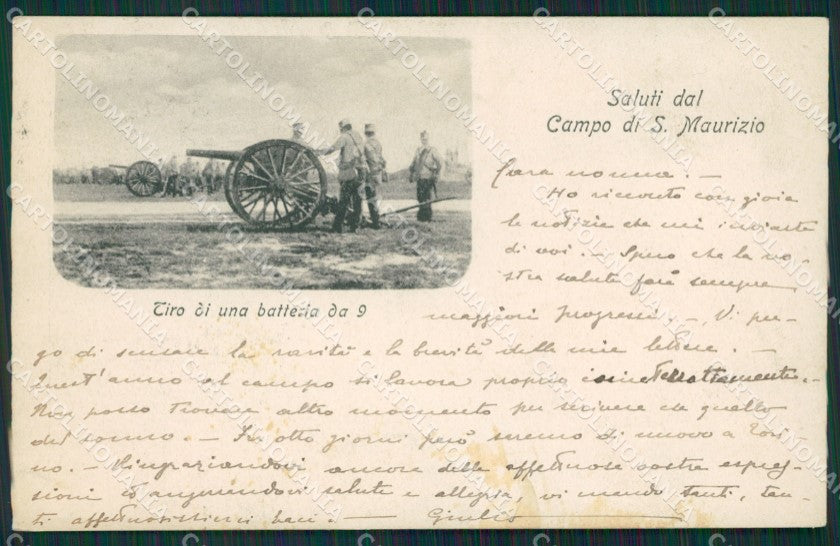 Saluti dal
Campo di S. Maurizio
Tiro di una batteria da 9
Cara nonna. —
Ho ricevuto con gioia
le notizie che mi inviaste
di voi. — Spero che la vo-
stra salute farà sempre
maggiori progressi. — Vi pre-
go di scusare la rarità e la brevità delle mie lettere. —
Quest'anno al campo si lavora proprio ininterrottamente. —
Non posso trovare altro momento per scrivere che quello
del sonno. — Fra otto giorni però saremo di nuovo a Tori-
no. — Ringraziandovi ancora delle affettuose vostre espres-
sioni ed augurandovi salute e allegria, vi mando tanti, tan-
ti affettuosissimi baci. — Giulio
CARTOLINOMANIA